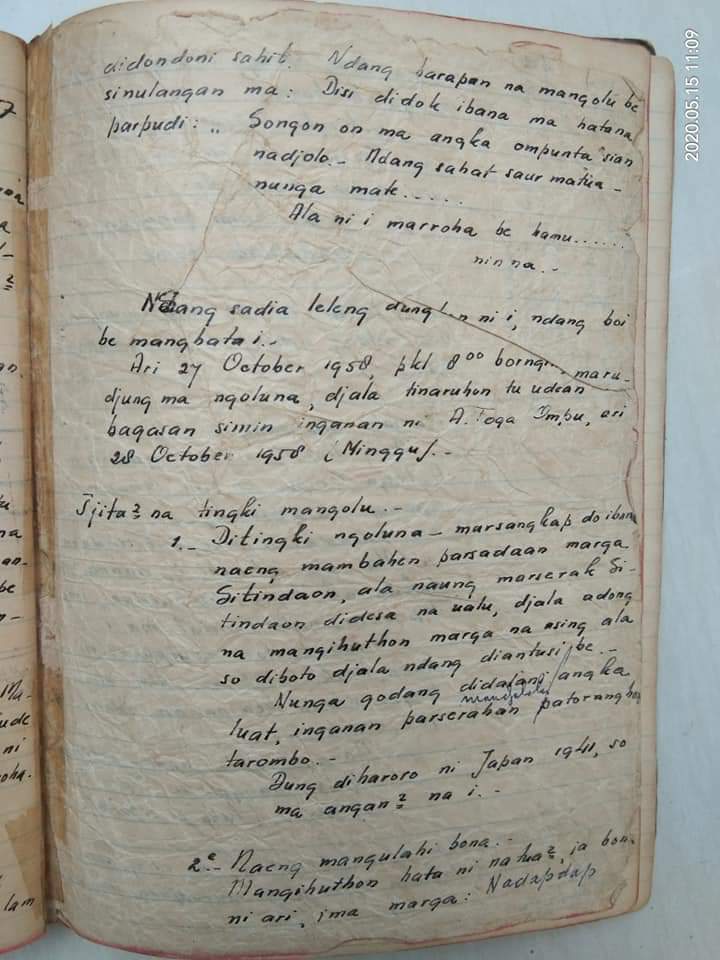 didondoni sahit. Ndang harapan na mangolu be
sinulangan ma: Disi didok ibana ma hatana
parpudi: „ Songon on ma angka ompunta sian
nadjolo.- Ndang sahat saur matua -
nunga mate.....
Ala ni i marroha be hamu......
ninna.-
Ndang sadia leleng dung ni i, ndang boi
be manghatai.-
Ari 27 October 1958, pkl 8⁰⁰ borngin, maru-
djung ma ngoluna, djala tinaruhon tu udean
bagasan simin inganan ni A. Toga Impu, ari
28 October 1958 (Minggu).-
Tjita² na tingki mangolu.-
1.- Ditingki ngoluna - marsangkap do ibana
naeng mambahen parsadaan marga
Sitindaon, ala naung marserak Si-
tindaon didesa na ualu, djala adong
na mangihuthon marga na asing ala
so diboto djala ndang diantusi be.-
Nunga godang didalani angka
luat, inganan parserahan patoranghon
tarombo.-
Dung diharoro ni Japan 1941, so
ma angan² na i.-
2ᵉ.- Naeng mangulahi bona.-
Mangihuthon hata ni natua², ia bona
ni ari, ima marga: Nadapdap
2020.05.15 11:09